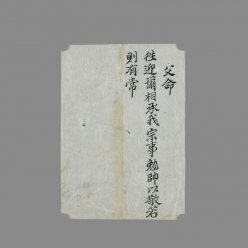 父命
往迎爾相承我宗事勉帥以敬若
則有常